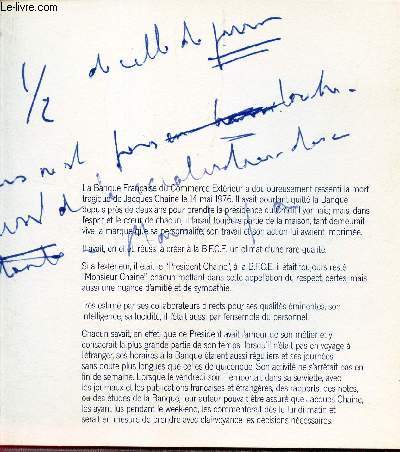 Le-livre.fr
1/2
de celle de
La Banque Française du Commerce Extérieur a douloureusement ressenti la mort
tragique de Jacques Chaine le 14 mai 1976. Il avait pourtant quitté la Banque
depuis près de deux ans pour prendre la présidence du Crédit Lyonnais; mais, dans
l'esprit et le cœur de chacun, il faisait toujours partie de la maison, tant demeurait
vive la marque que sa personnalité, son travail et son action lui avaient imprimée.
Il avait, en effet, réussi à créer à la B.F.C.E. un climat d'une rare qualité.
Si à l'extérieur, il était le "Président Chaine", à la B.F.C.E. il était toujours resté
"Monsieur Chaine" chacun mettant dans cette appellation du respect, certes, mais
aussi une nuance d'amitié et de sympathie.
Très estimé par ses collaborateurs directs pour ses qualités éminentes, son
intelligence, sa lucidité, il l'était aussi par l'ensemble du personnel.
Chacun savait, en effet, que ce Président avait l'amour de son métier et y
consacrait la plus grande partie de son temps: lorsqu'il n'était pas en voyage à
l'étranger, ses horaires à la Banque étaient aussi réguliers et ses journées
sans doute plus longues que celles de quiconque. Son activité ne s'arrêtait pas en
fin de semaine. Lorsque le vendredi soir il emportait dans sa serviette, avec
les journaux et les publications françaises et étrangères, des rapports, des notes,
ou des études de la Banque, leur auteur pouvait être assuré que Jacques Chaine,
les ayant lus pendant le week-end, les commenterait dès le lundi matin et
serait en mesure de prendre avec clairvoyance les décisions nécessaires.